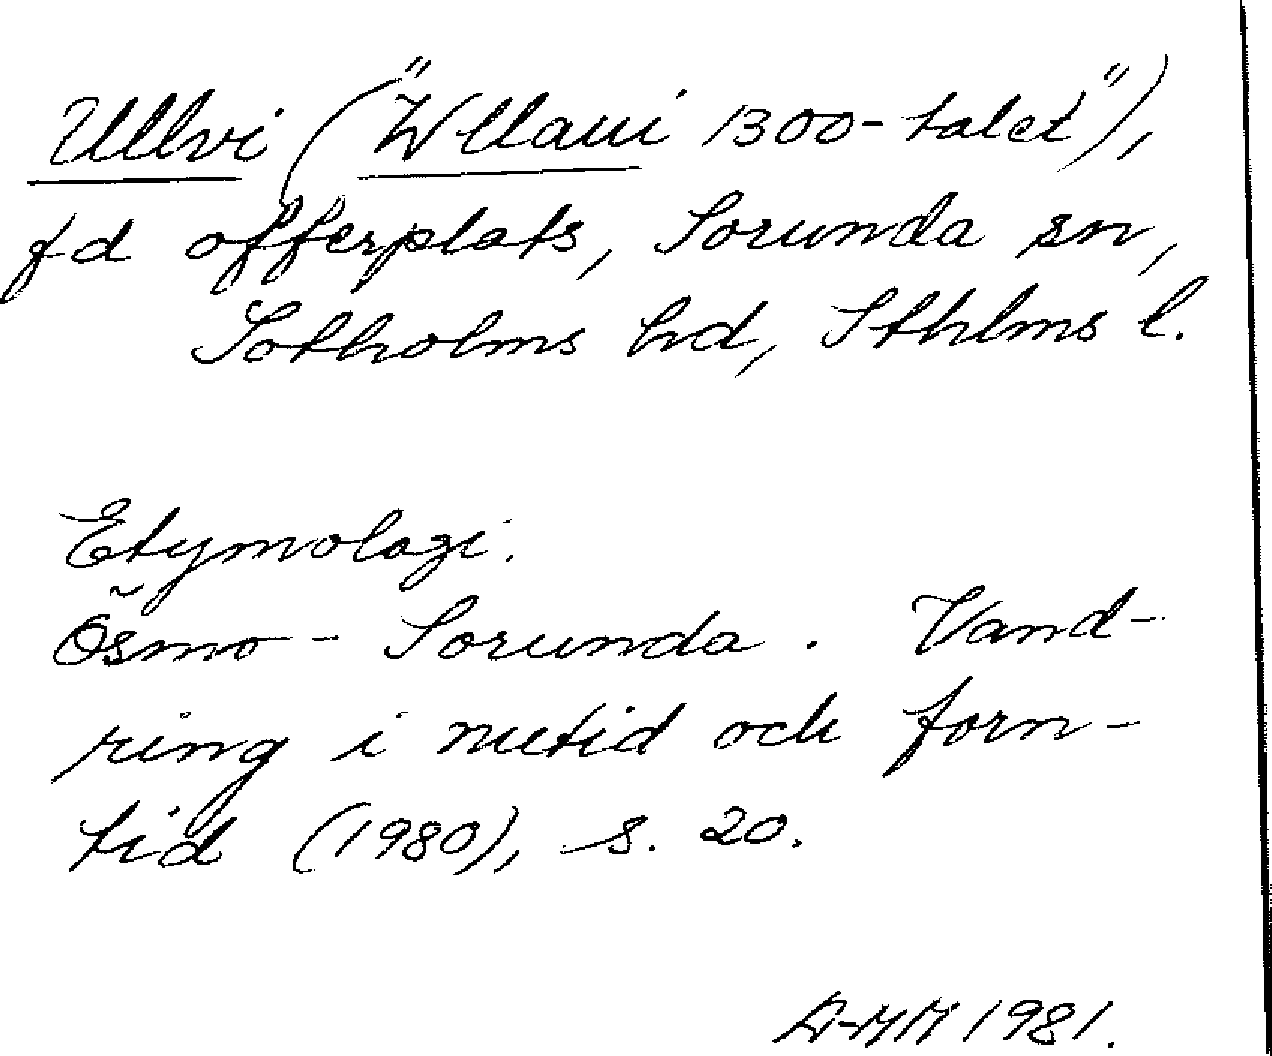 Ullvi ("Wllaui 1300-talet"),
fd offerplats, Sorunda sn,
Sotholms hd, Sthlms l.
Etymologi.
Ösmo - Sorunda. Vand-
ring i nutid och forn-
tid (1980), s. 20.
A-MM 1981.